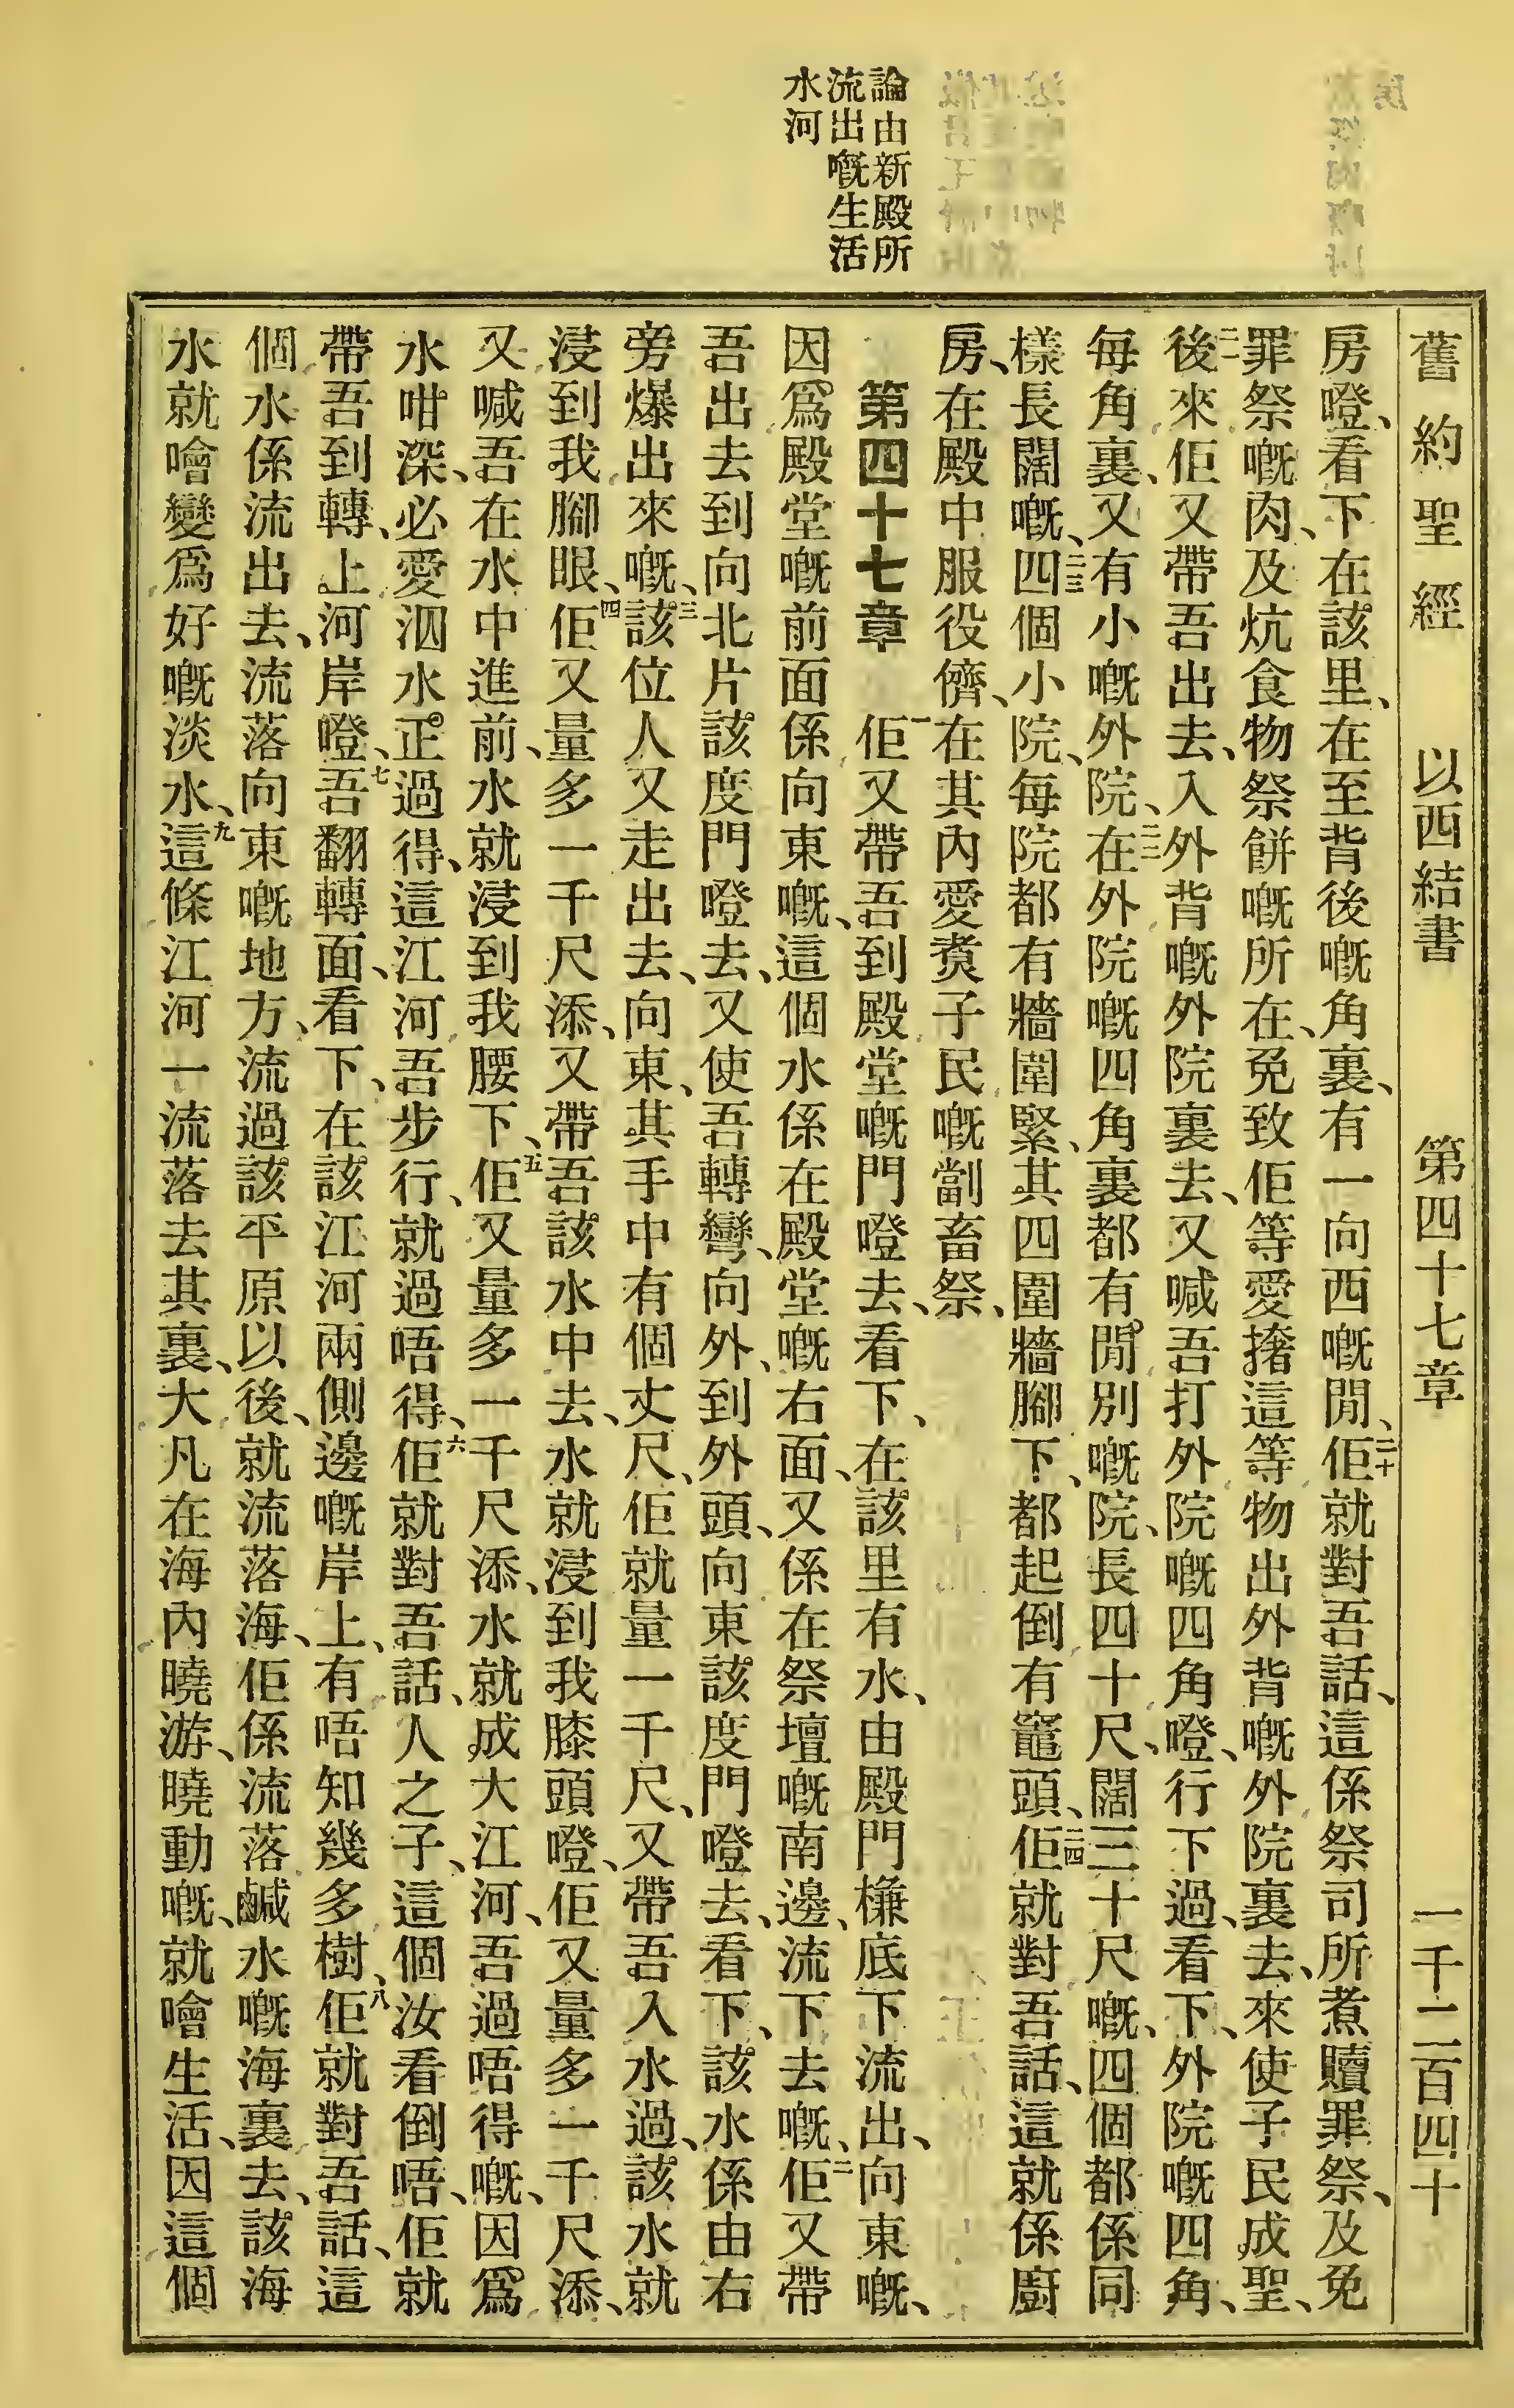 論由新殿所
流出嘅生活
水河
舊約聖經　以西結書　第四十七章　一千二百四十
房嶝、看下在該里、在至背後嘅角裏、有一向西嘅閒、二十佢就對吾話、這係祭司所煮贖罪祭、及免
罪祭嘅肉、及炕食物祭餅嘅所在、免致佢等愛撦這等物出外背嘅外院裏去、來使子民成聖、
二一後來佢又帶吾出去、入外背嘅外院裏去、又喊吾打外院嘅四角嶝、行下過、看下、外院嘅四角、
每角裏、又有小嘅外院、二二在外院嘅四角裏都有閒別嘅院、長四十尺、闊三十尺嘅、四個都係同
樣長闊嘅、二三四個小院、每院都有牆圍緊、其四圍牆腳下、都起倒有竈頭、二四佢就對吾話、這就係廚
房、在殿中服役儕、在其內愛煑子民嘅劏畜祭、
第四十七章　一佢又帶吾到殿堂嘅門嶝去、看下、在該里有水、由殿門槏底下流出、向東嘅、
因爲殿堂嘅前面係向東嘅、這個水係在殿堂嘅右面、又係在祭壇嘅南邊、流下去嘅、二佢又帶
吾出去到向北片該度門嶝去、又使吾轉彎、向外、到外頭、向東該度門嶝去、看下、該水係由右
旁爆出來嘅、三該位人又走出去、向東、其手中有個丈尺、佢就量一千尺、又帶吾入水過、該水就
浸到我腳眼、四佢又量多一千尺添、又帶吾該水中去、水就浸到我膝頭嶝、佢又量多一千尺添、
又喊吾在水中進前、水就浸到我腰下、五佢又量多一千尺添、水就成大江河、吾過唔得嘅、因爲
水咁深、必愛泅水正過得、這江河吾步行、就過唔得、六佢就對吾話、人之子、這個汝看倒唔、佢就
帶吾到轉、上河岸嶝、七吾翻轉面、看下、在該江河兩側邊嘅岸上、有唔知幾多樹、八佢就對吾話、這
個水係流出去、流落向東嘅地方、流過該平原以後、就流落海、佢係流落鹹水嘅海裏去、該海
水就噲變爲好嘅淡水、九這條江河一流落去其裏、大凡在海內曉游、曉動嘅、就噲生活、因這個